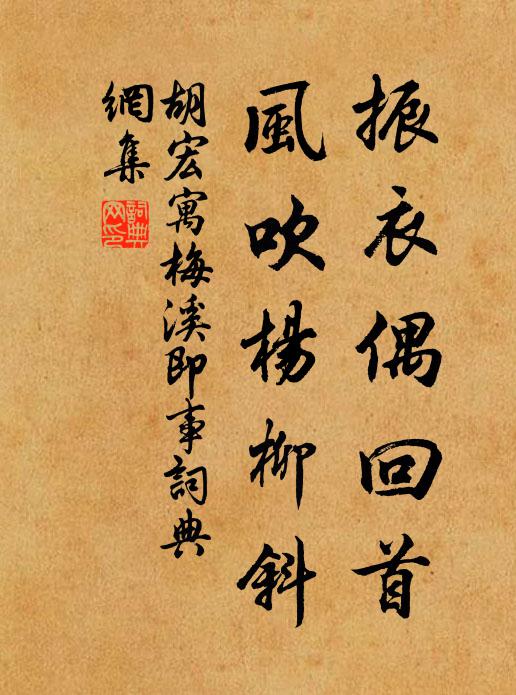 振衣偶回首
風吹楊柳斜
胡宏寓梅溪即事詞典
網集
詞典
網印